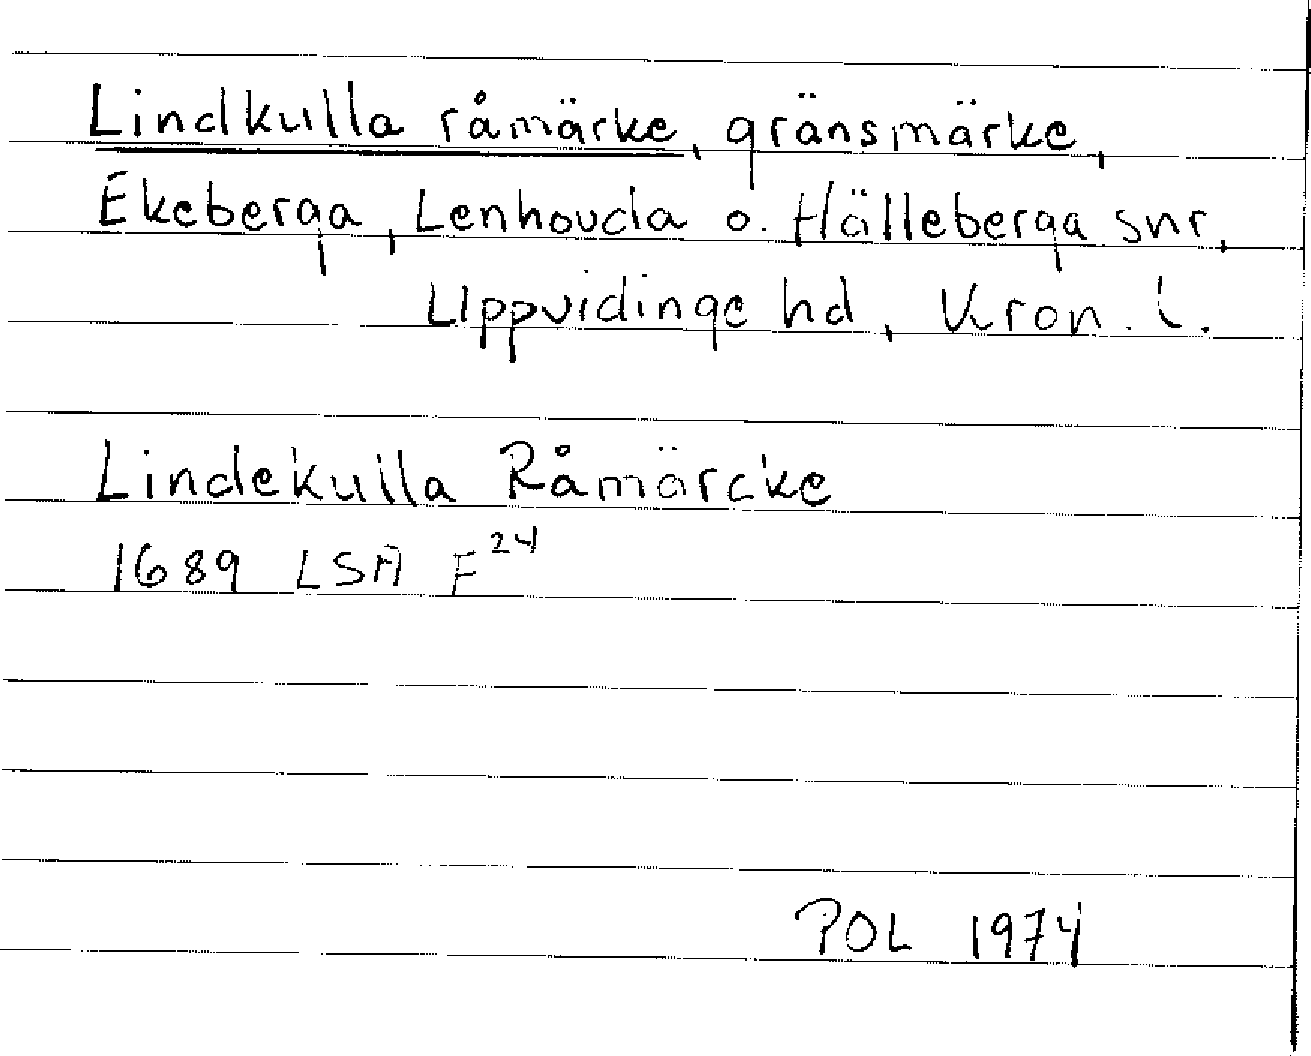 Lindkulla råmärke, gränsmärke,
Ekeberga, Lenhovda o. Hälleberga snr,
Uppvidinge hd, Kron. l.
Lindekulla Råmärcke
1689 LSA F 24
POL 1974